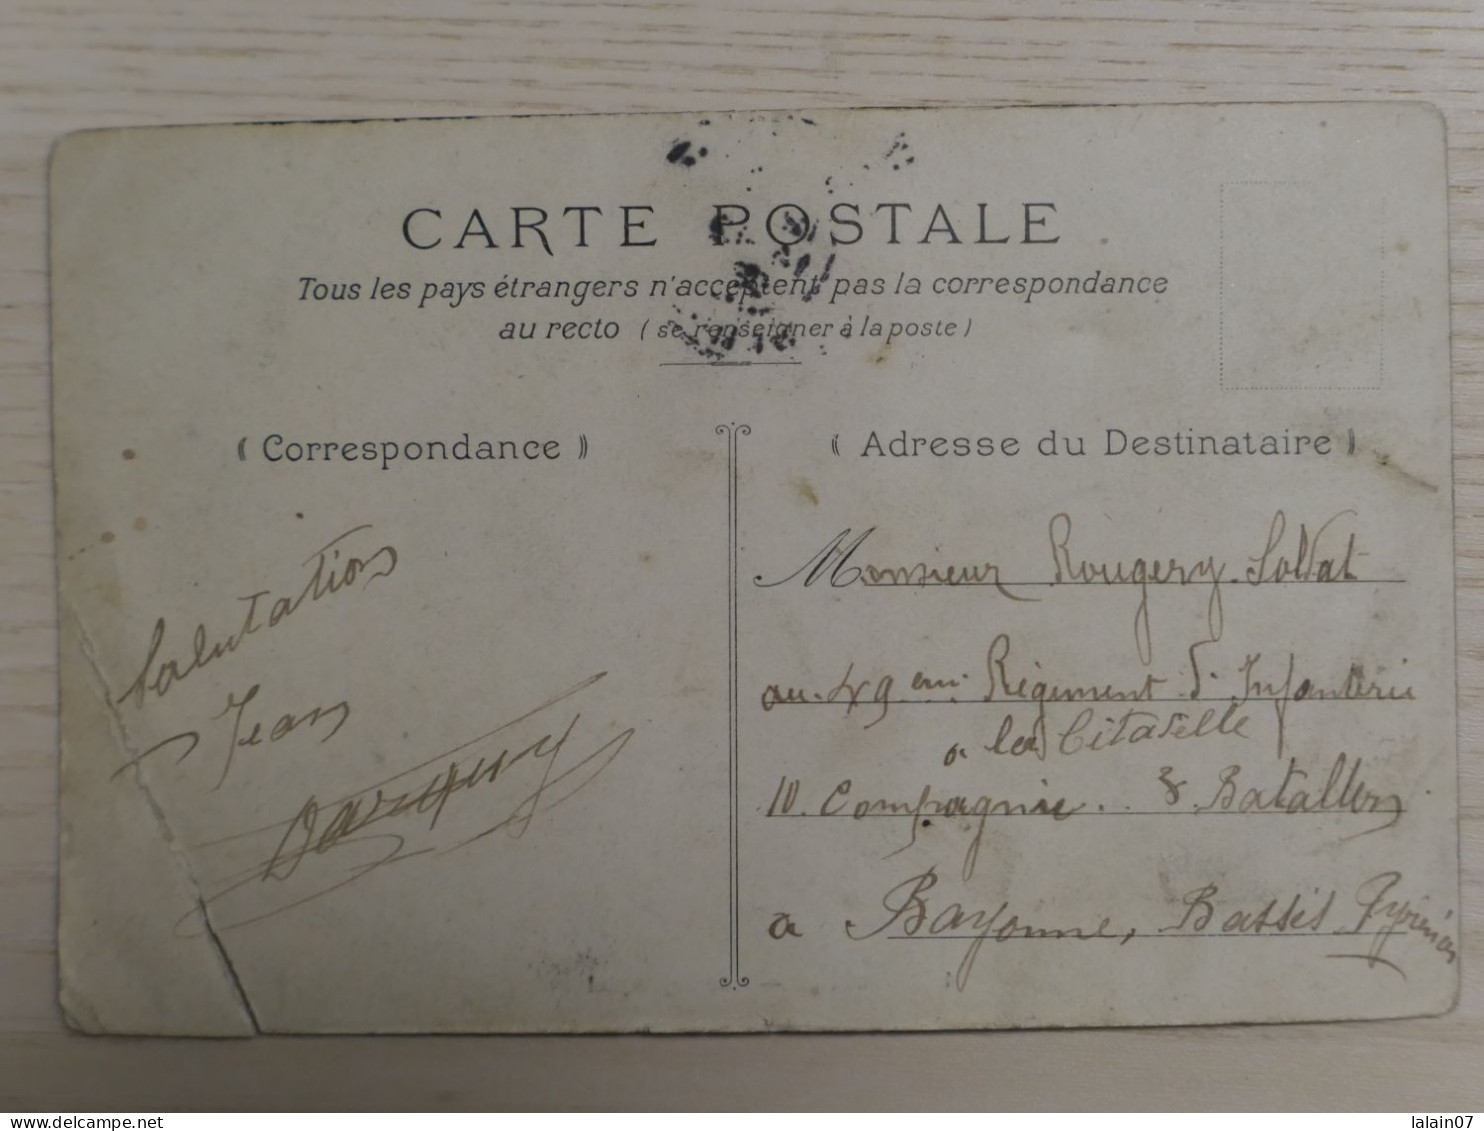 CARTE POSTALE
Tous les pays étrangers n'acceptent pas la correspondance
au recto (se renseigner à la poste)
(Correspondance)
Salutation
Jean
(Adresse du Destinataire)
Monsieur Rougery Soldat
au 49 em Régiment d'Infanterie
a la Citadelle
10. Compagnie .. 3 Batallon
a Bayonne, Basses Pyrénées
www.delcampe.net
lalain07